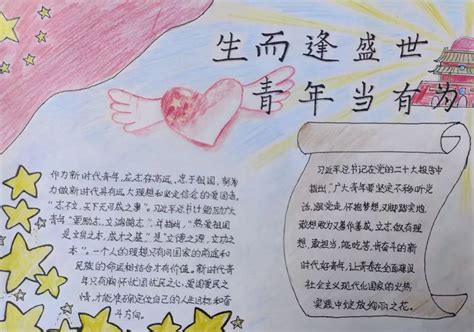 生而逢盛世
青年当有为
作为新时代青年，应志存高远，忠于祖国，努力
做新时代具有远大理想和坚定信念的爱国者。
"志不立，天下无可成之事"。习近平总书记勉励广大
青年"要励志，立鸿鹄志"，并指出，"热爱祖国
是立身之本，成才之基"是"立德之源，立功之
本"。一个人的理想只有同国家的前途和
民族的命运相结合才有价值。新时代青
年只有胸怀忧国忧民之心、爱国爱民之
情，才能准确定位自己的人生目标和奋
斗方向。
习近平总书记在党的二十大报告中
指出，"广大青年要坚定不移听党
话、跟党走，怀抱梦想又脚踏实地，
敢想敢为又善作善成，立志做有理想、
敢担当、能吃苦、肯奋斗的新
时代好青年，让青春在全面建设
社会主义现代化国家的火热
实践中绽放绚丽之花。